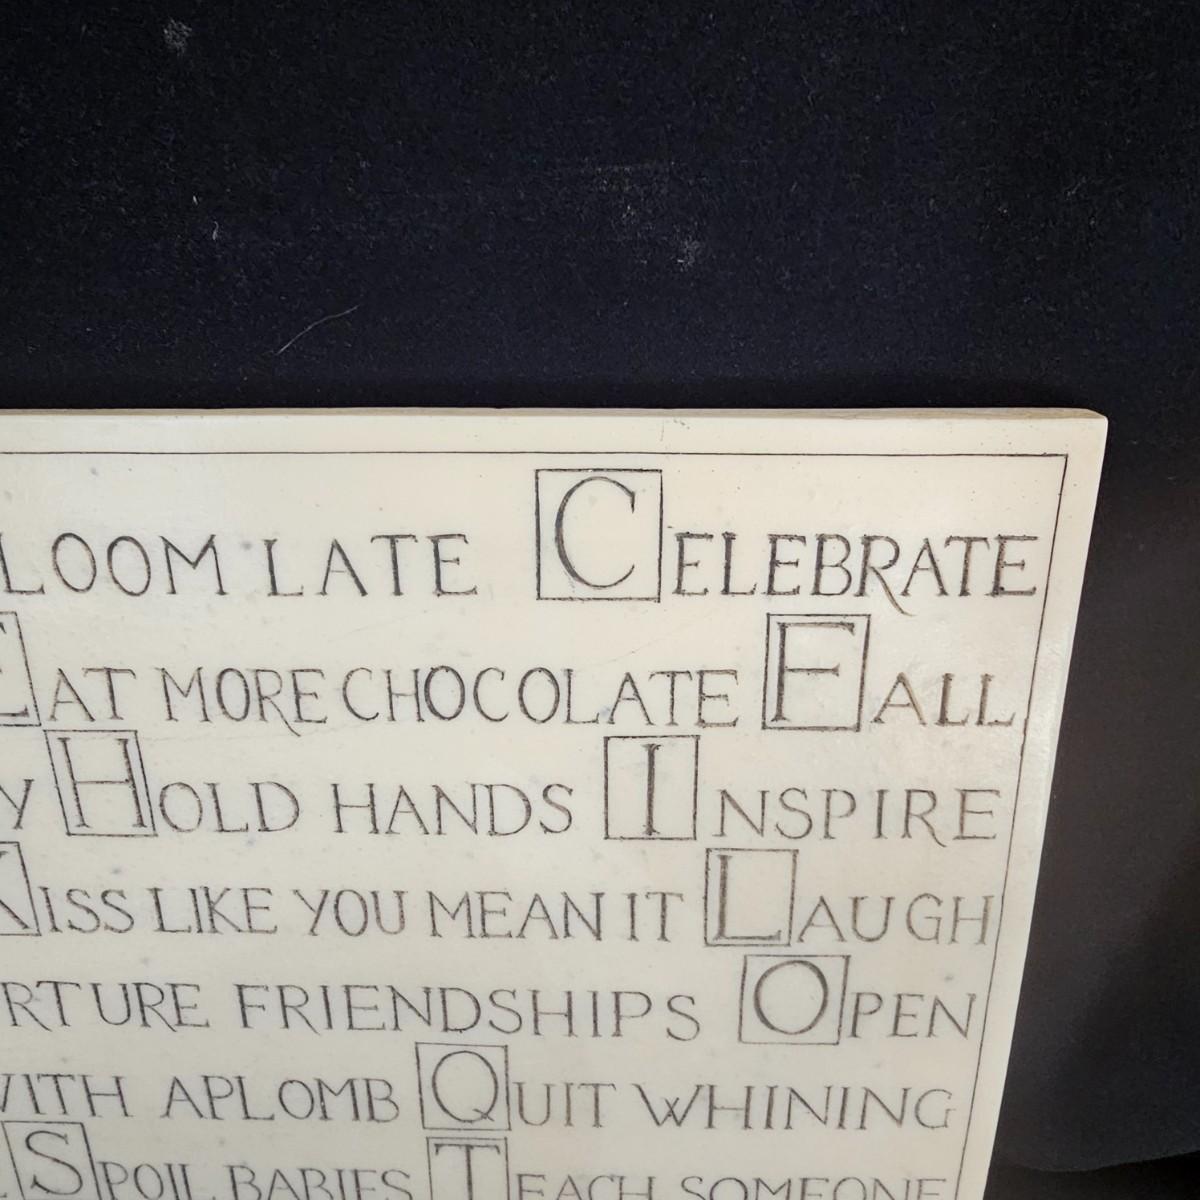 LOOM LATE CELEBRATE
EAT MORE CHOCOLATE FALL
Y HOLD HANDS INSPIRE
KISS LIKE YOU MEAN IT LAUGH
RTURE FRIENDSHIPS OPEN
WITH APLOMB QUIT WHINING
SPOIL BABIES TEACH SOMEONE